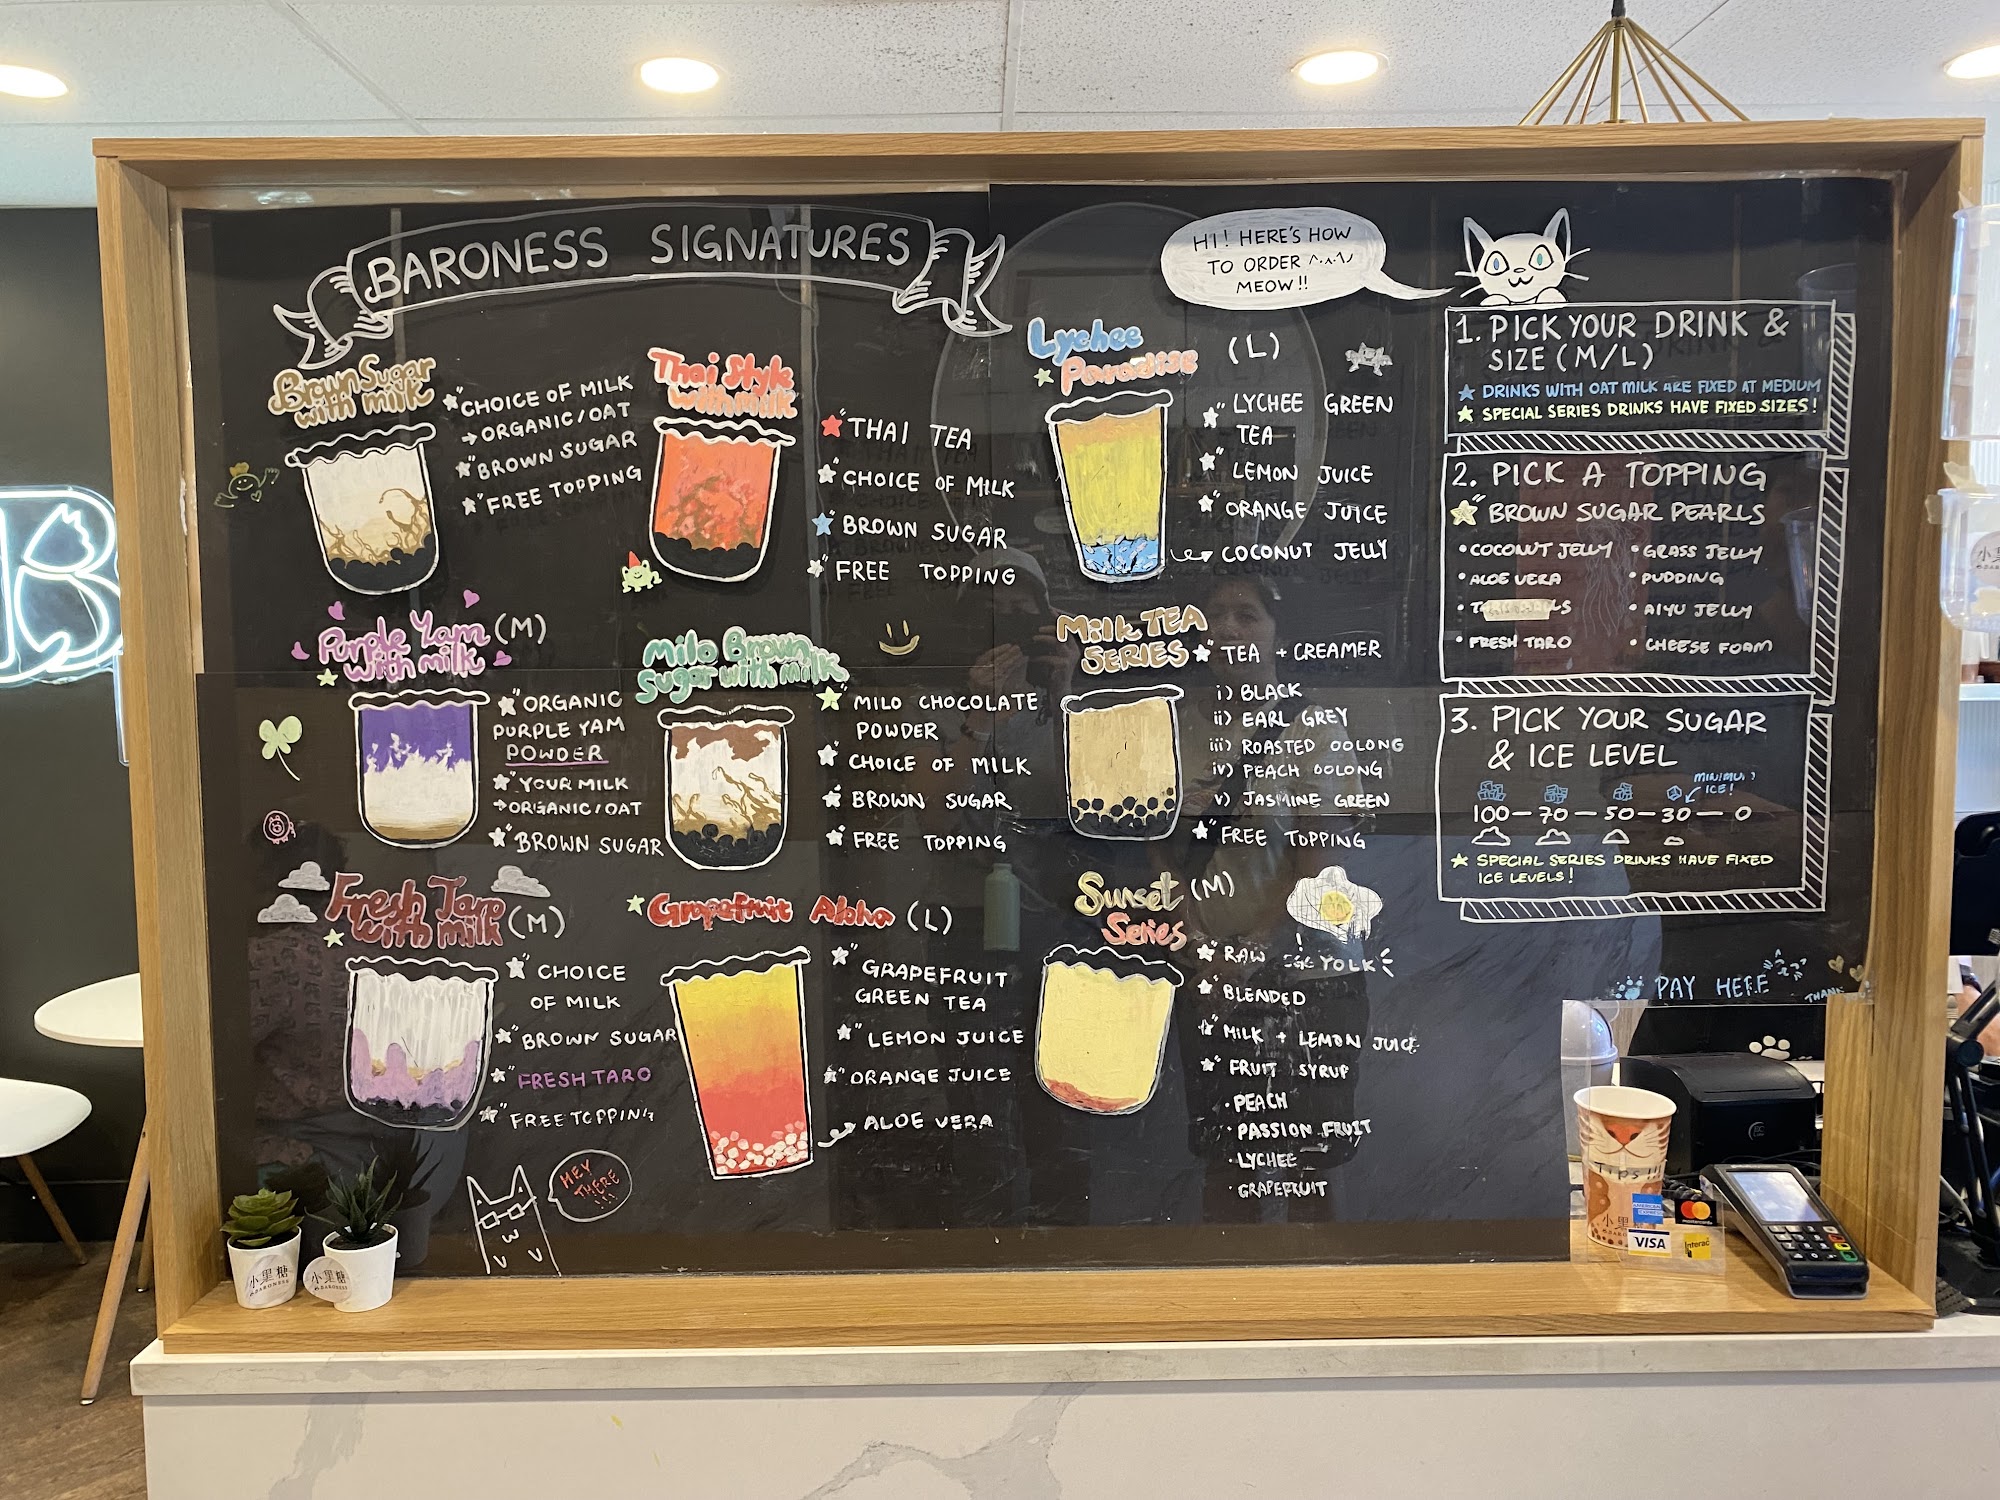 BARONESS SIGNATURES
Brown Sugar
with milk
CHOICE OF MILK
→ ORGANIC/OAT
BROWN SUGAR
FREE TOPPING
Thai Style
with milk
THAI TEA
CHOICE OF MILK
BROWN SUGAR
FREE TOPPING
Purple Yam (M)
with milk
ORGANIC
PURPLE YAM
POWDER
YOUR MILK
→ ORGANIC/OAT
BROWN SUGAR
Milo Brown
Sugar with milk
MILO CHOCOLATE
POWDER
CHOICE OF MILK
BROWN SUGAR
FREE TOPPING
Fresh Taro
with milk (M)
CHOICE
OF MILK
BROWN SUGAR
FRESH TARO
FREE TOPPING
Grapefruit Aloha (L)
GRAPEFRUIT
GREEN TEA
LEMON JUICE
ORANGE JUICE
ALOE VERA
HEY
THERE
!!!
Lychee (L)
Paradise
LYCHEE GREEN
TEA
LEMON JUICE
ORANGE JUICE
COCONUT JELLY
Milk TEA
SERIES
TEA + CREAMER
i) BLACK
ii) EARL GREY
iii) ROASTED OOLONG
iv) PEACH OOLONG
v) JASMINE GREEN
FREE TOPPING
Sunset (M)
Series
RAW EGG YOLK
BLENDED
MILK + LEMON JUICE
FRUIT SYRUP
• PEACH
• PASSION FRUIT
• LYCHEE
• GRAPEFRUIT
HI! HERE'S HOW
TO ORDER
MEOW!!
1. PICK YOUR DRINK &
SIZE (M/L)
DRINKS WITH OAT MILK ARE FIXED AT MEDIUM
SPECIAL SERIES DRINKS HAVE FIXED SIZES!
2. PICK A TOPPING
BROWN SUGAR PEARLS
• COCONUT JELLY • GRASS JELLY
• ALOE VERA • PUDDING
• AIYU JELLY
• FRESH TARO • CHEESE FOAM
3. PICK YOUR SUGAR
& ICE LEVEL
MINIMUM
ICE!
100 – 70 – 50 – 30 – 0
SPECIAL SERIES DRINKS HAVE FIXED
ICE LEVELS!
PAY HERE
THANK
Tips!!!
AMERICAN EXPRESS
mastercard
VISA
Interac
小里糖
BARONESS
小里糖
BARONESS
B